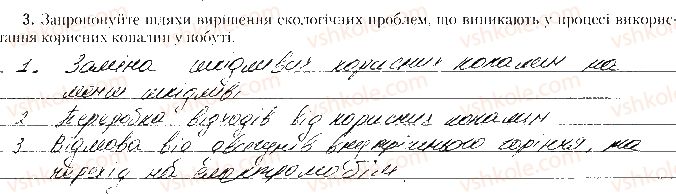 3. Запропонуйте шляхи вирішення екологічних проблем, що виникають у процесі викорис-
тання корисних копалин у побуті.
1. Заміна шкідливих корисних копалин на
менш шкідливі
2 Переробка відходів від корисних копалин
3 Відмова від двигунів внутрішнього горіння, та
перехід на електромобілі.